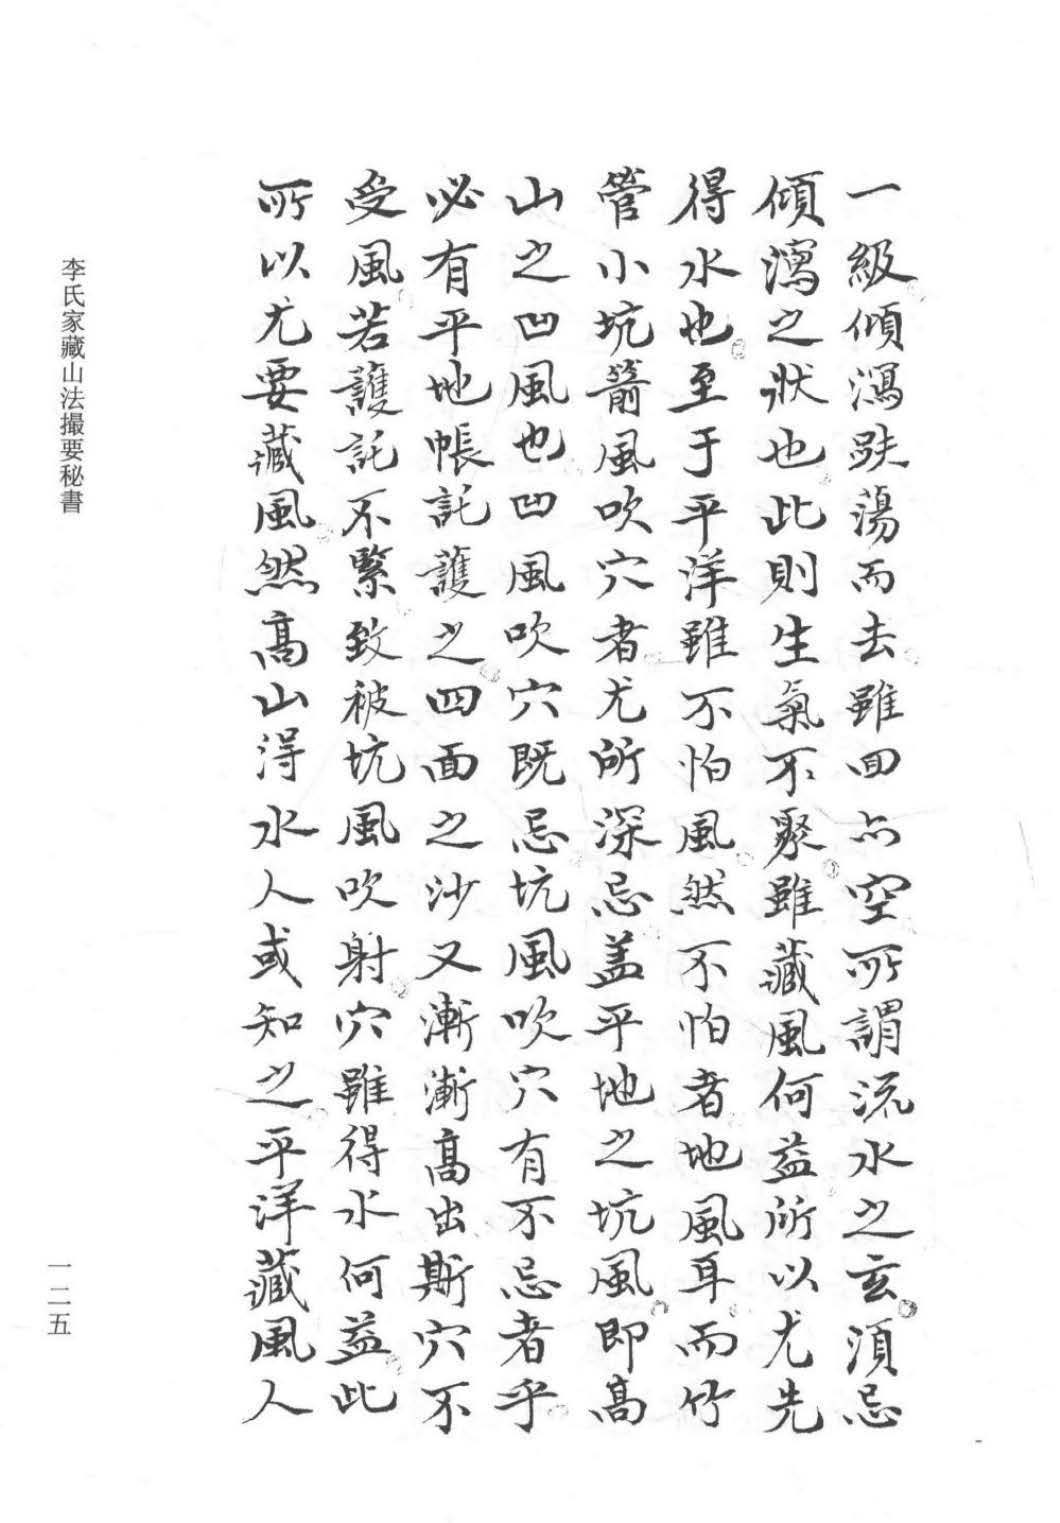 一級傾瀉跌蕩而去雖回亦空所謂流水之玄須忌
傾瀉之狀也此則生氣不聚雖藏風何益所以尤先
得水也至于平洋雖不怕風然不怕者地風耳而竹
管小坑箭風吹穴者尤所深忌盖平地之坑風即高
山之凹風也凹風吹穴既忌坑風吹穴有不忌者乎
必有平地帳託護之四面之沙又漸漸高出斯穴不
受風若護託不緊致被坑風吹射穴雖得水何益此
所以尤要藏風然高山得水人或知之平洋藏風人
李氏家藏山法撮要秘書
一二五